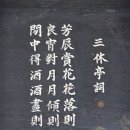 三休亭詞
芳辰賞花花落則
良宵對月月傾則
閑中得酒酒盡則